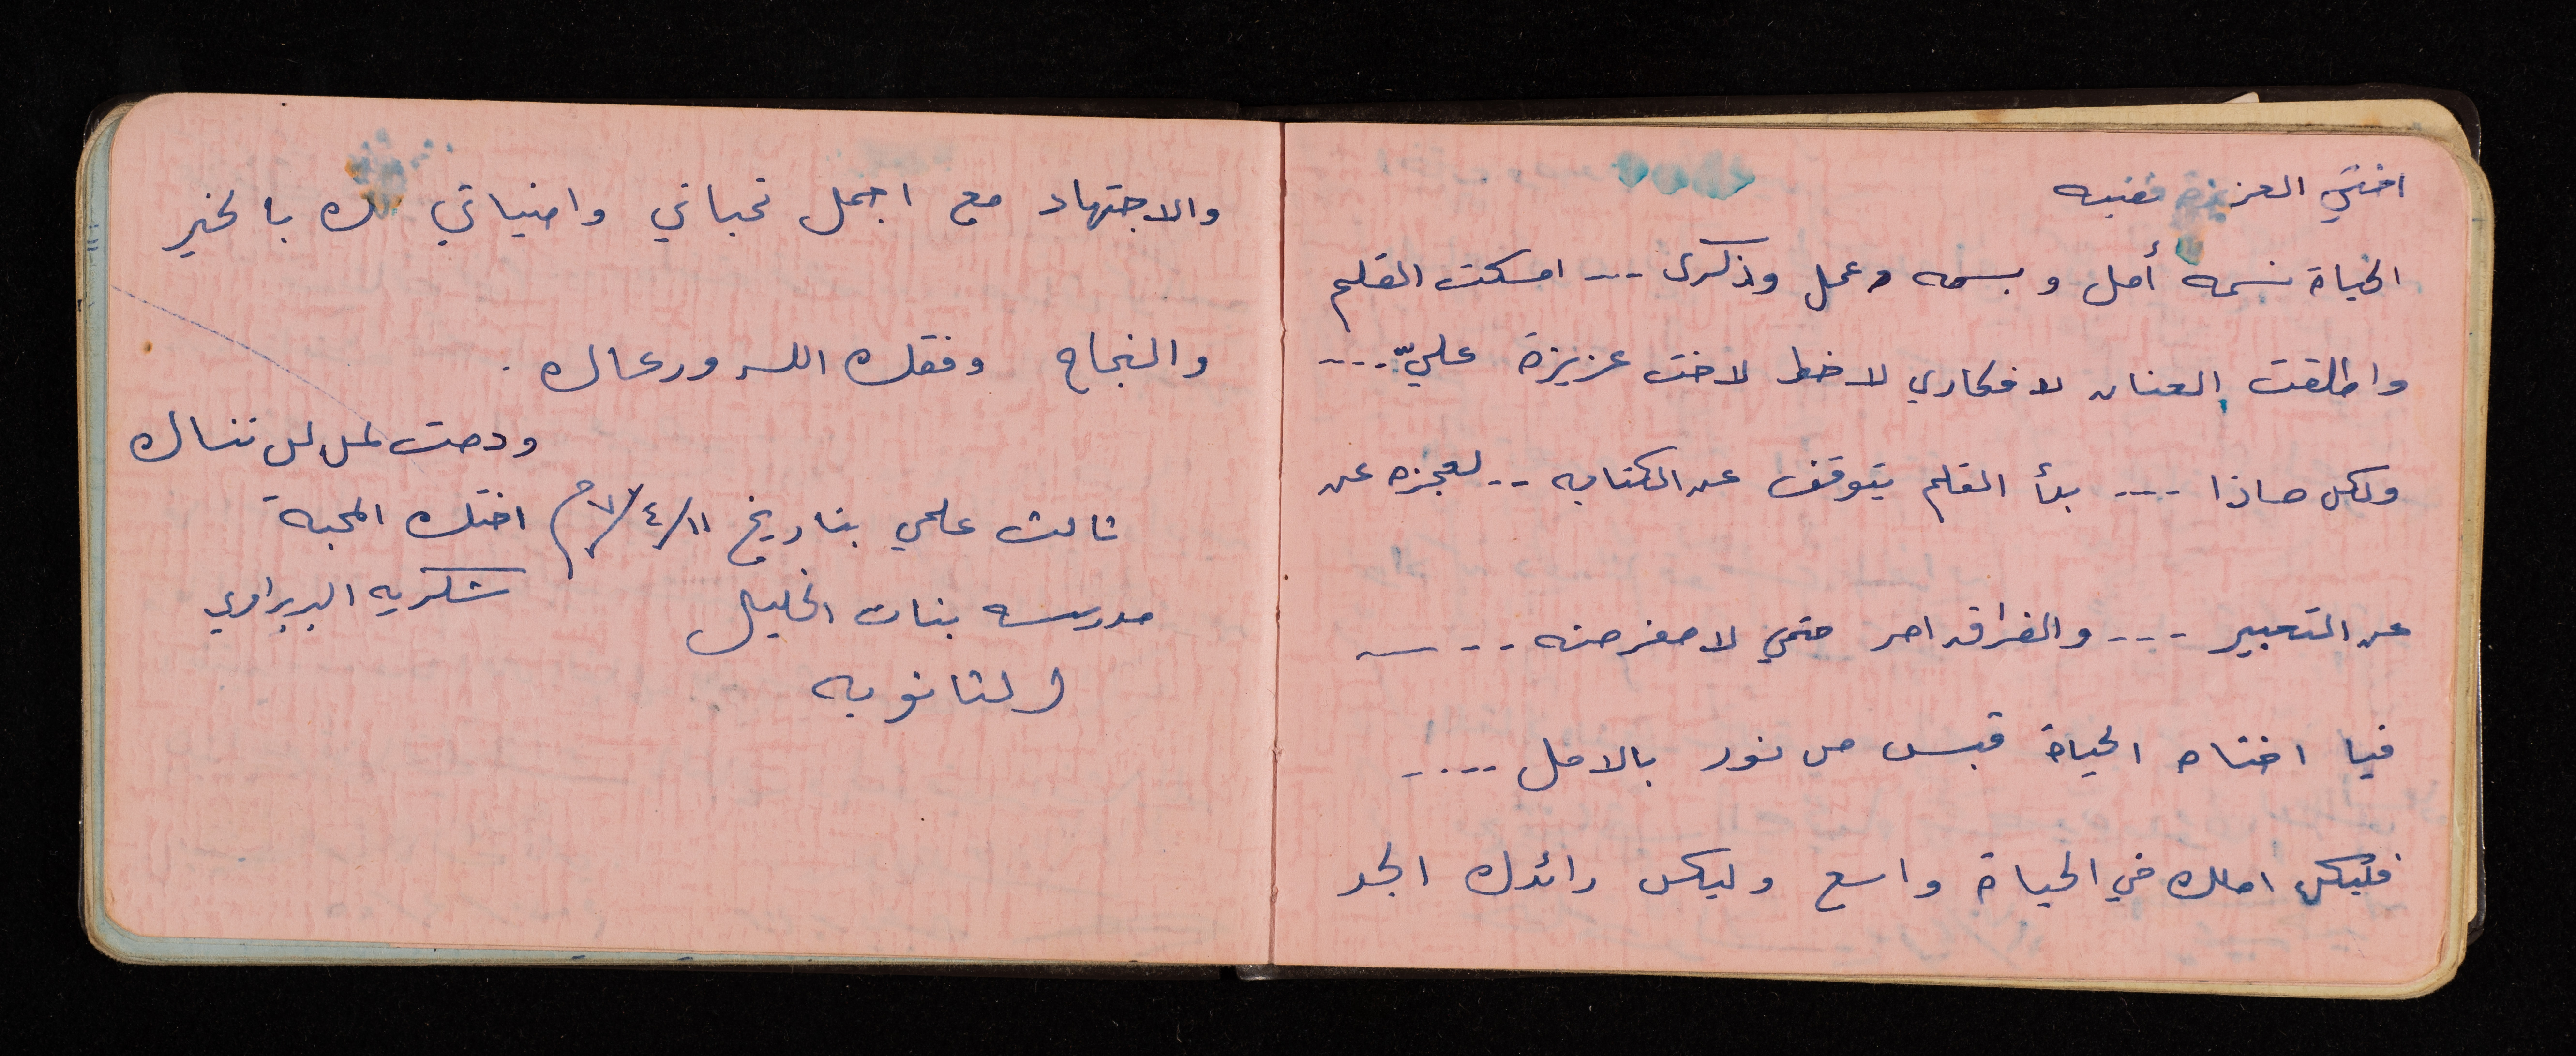 اختي العزيزة
الحياة نسمه أمل و بسمه وعمل وذكرى --- امسكت القلم
واطلقت العنان لافكاري لاخط لاخت عزيزة عليّ ----
ولكن ماذا ---- بدأ القلم يتوقف عن الكتابه -- لعجزه عن
عن التعبير --- والفراق امر حتمي لا مفر منه ---
فيا اختاه الحياة قبس من نور بالامل ----
فليكن املك في الحياة واسع وليكن رائدك الجد
والاجتهاد مع اجمل تحياتي وامنياتي لك بالخير
والنجاح وفقك الله ورعاك .
ودمت لمن لن تنساك
ثالث علمي بتاريخ ١١/٤/ اختك المحبة
مدرسه بنات الخليل شكريه البربراوي
الثانويه